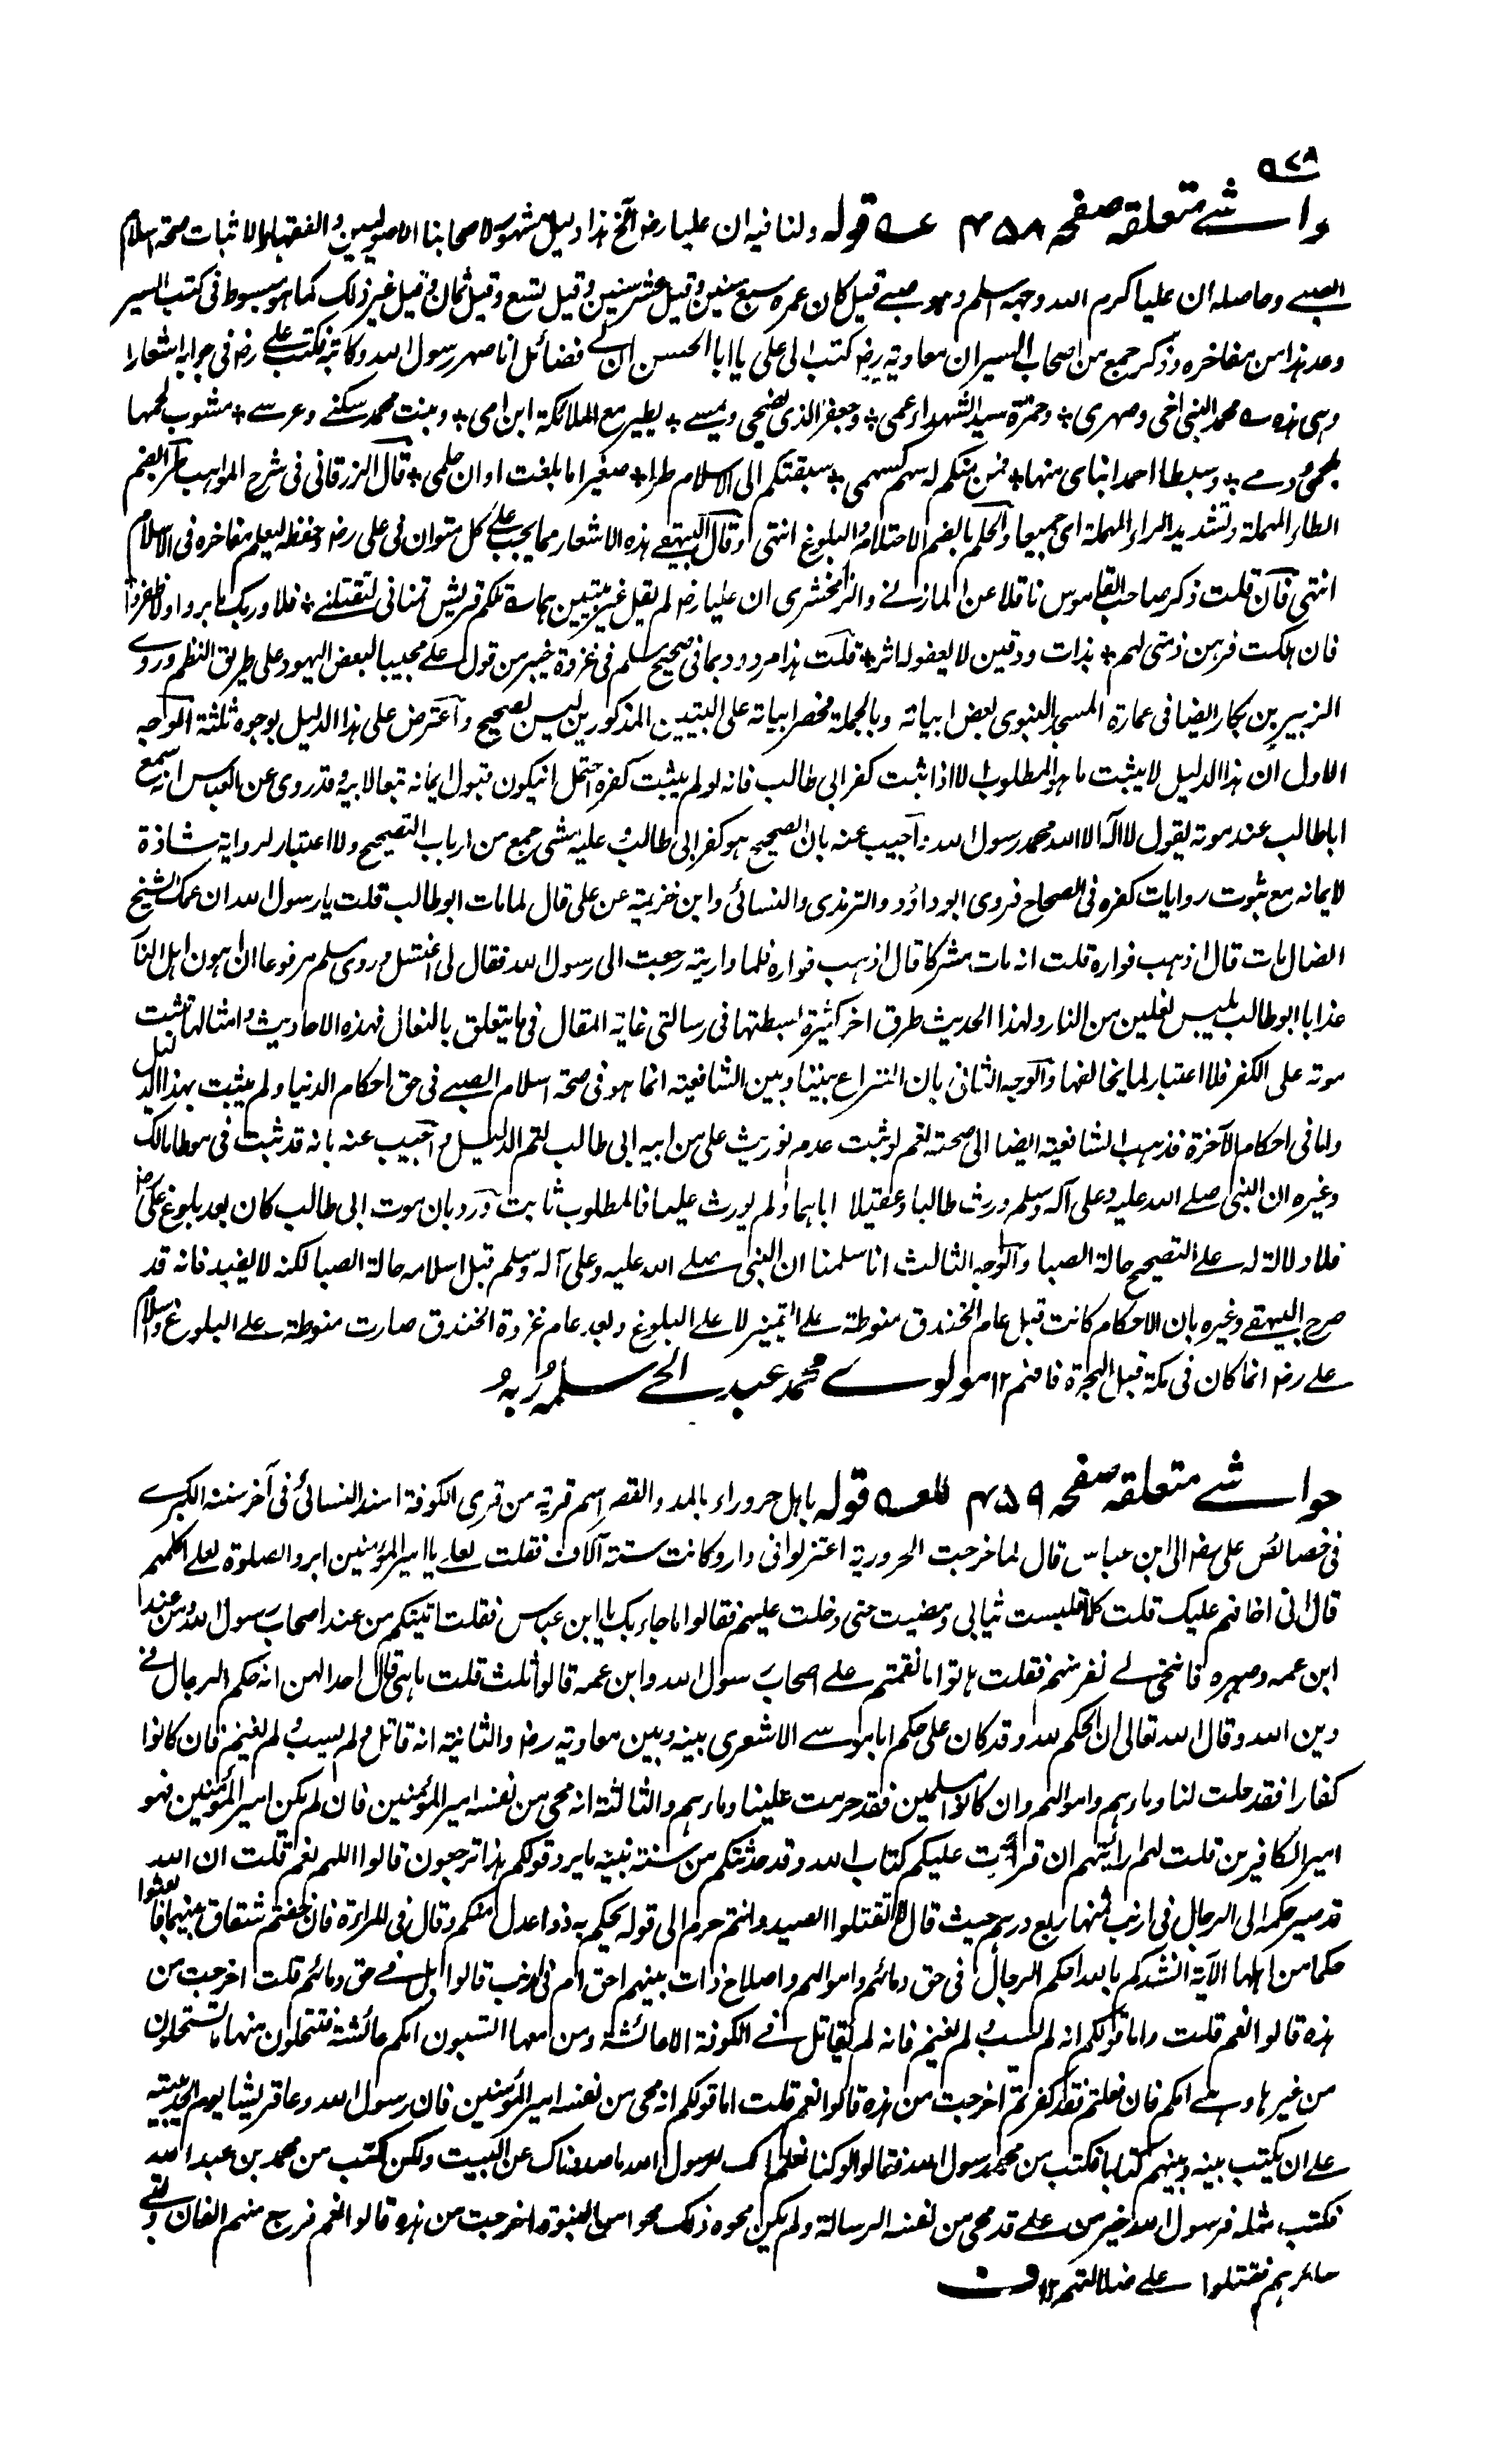 ٩٢٨
حواشے متعلقہ صفحہ ٤٥٨ عہ قوله ولنا فيه ان عليا رض الخ هذا دليل مشهور لاصحابنا الاصوليين والفقهاء لاثبات صحة اسلام
الصبے وحاصله ان عليا كرم الله وجهه اسلم وهو صبے قيل كان عمره سبع سنين وقيل عشر سنين وقيل تسع وقيل ثمان وقيل غير ذلك كما هو مبسوط فى كتب السير
وعد هذا من مفاخره وذكر جمع من اصحاب السير ان معاوية رض كتب الى على يا ابا الحسن ان لے فضائل انا صهر رسول الله وكاتبه فكتب علے رض فى جوابه اشعارا
وهى هذه ـه محمد النبى اخى وصهرى * وحمزة سيد الشهداء عمى * وجعفر الذى يضحى ويمسے * يطير مع الملائكة ابن امى * وبنت محمد سكنے وعرسے * مشوب لحمها
بلحمى ودمے * وسبطا احمد ابناى منها * فمن منكم له سهم كسهمى * سبقتكم الى الاسلام طرا * صغيرا ما بلغت اوان حلمى * قال الزرقانى فى شرح المواهب طرا بضم
الطاء المهملة وتشديد الراء المهملة اى جميعا والحلم بالضم الاحتلام والبلوغ انتهى وقال البيهقے هذه الاشعار مما يجب علے كل متوان فى على رض حفظه ليعلم مفاخره فى الاسلام
انتهى فان قلت ذكر صاحب القاموس ناقلا عن المازنے والزمخشرى ان عليا رض لم يقل غير بيتين هما ـه تلكم قريش تمنانى لتقتلنے * فلا وربك ما بروا ولا ظفروا
فان هلكت فرهن ذمتى لهم * بذات ودقين لا يعفو لها اثر * قلت هذا مردود بما فى صحيح مسلم فى غزوة خيبر من قول علے مجيبا لبعض اليهود على طريق النظم وروے
الزبير بن بكار ايضا فى عمارة المسجد النبوى بعض ابياته وبالجملة فحصر ابياته على البيتين المذكورين ليس بصحيح واعترض على هذا الدليل بوجوه ثلثة الوجه
الاول ان هذا الدليل لا يثبت ما هو المطلوب الا اذا ثبت كفر ابى طالب فانه لو لم يثبت كفره احتمل ان يكون قبول ايمانه تبعا لابيه وقد روى عن العباس انه سمع
ابا طالب عند موته يقول لا اله الا الله محمد رسول الله واجيب عنه بان الصحيح هو كفر ابى طالب وعليه مشى جمع من ارباب التصحيح ولا اعتبار لرواية شاذة
لايمانه مع ثبوت روايات كفره فى الصحاح فروى ابو داؤد والترمذى والنسائى وابن خزيمة عن على قال لما مات ابو طالب قلت يا رسول الله ان عمك الشيخ
الضال مات قال اذهب فواره قلت انه مات مشركا قال اذهب فواره فلما واريته رجعت الى رسول الله فقال لى اغتسل وروى مسلم مرفوعا ان اهون اهل النار
عذابا ابو طالب يلبس نعلين من النار ولهذا الحديث طرق اخر كثيرة بسطتها فى رسالتى غاية المقال فى ما يتعلق بالنعال فهذه الاحاديث وامثالها تثبت
موته على الكفر فلا اعتبار لما يخالفها والوجه الثانى بان النزاع بيننا وبين الشافعية انما هو فى صحة اسلام الصبے فى حق احكام الدنيا ولم يثبت بهذا الدليل
واما فى احكام الآخرة فذهب الشافعية ايضا الى صحته نعم لو ثبت عدم توريث على من ابيه ابى طالب لتم الدليل واجيب عنه بانه قد ثبت فى موطا مالك
وغيره ان النبى صلے الله عليه وعلى آله وسلم ورث طالبا وعقيلا اباهما ولم يورث عليا فالمطلوب ثابت ورد بان موت ابى طالب كان بعد بلوغ على رض
فلا دلالة له علے التصحيح حالة الصبا والوجه الثالث انا سلمنا ان النبى صلے الله عليه وعلى آله وسلم قبل اسلامه حالة الصبا لكنه لا يفيد فانه قد
صرح البيهقے وغيره بان الاحكام كانت قبل عام الخندق منوطة علے التميز لا علے البلوغ وبعد عام غزوة الخندق صارت منوطة علے البلوغ واسلام
علے رض انما كان فى مكة قبل الهجرة فافهم ١٢ مولوے محمد عبد الحے سلمہ ربہ
حواشے متعلقہ صفحہ ٤٥٩ للعہ قوله باهل حروراء بالمد والقصر اسم قرية من قرى الكوفة اسند النسائى فى آخر سننه الكبرے
فى خصائص على رض الى ابن عباس قال لما خرجت الحرورية اعتزلوا فى دار وكانت ستة آلاف فقلت لعلے يا امير المؤمنين ابرد الصلوة لعلے اكلمهم
قال انى اخافهم عليك قلت كلا فلبست ثيابى ومضيت حتى دخلت عليهم فقالوا ما جاء بك يا ابن عباس فقلت اتيتكم من عند اصحاب رسول الله ومن عند
ابن عمه وصهره فانتحى لے نفر منهم فقلت هاتوا ما نقمتم علے اصحاب رسول الله وابن عمه قالوا ثلث قلت ما هى قال احداهن انه حكم الرجال فے
دين الله وقال الله تعالى ان الحكم الا لله وقد كان على حكم ابا موسے الاشعرى بينه وبين معاوية رض والثانية انه قاتل ولم يسب ولم يغنم فان كانوا
كفارا فقد حلت لنا دماءهم واموالهم وان كانوا مسلمين فقد حرمت علينا دماءهم والثالثة انه محى من نفسه امير المؤمنين فان لم يكن امير المؤمنين فهو
امير الكافرين قلت لهم ارايتم ان قرأت عليكم كتاب الله وقد حدثتكم من سنة نبيه ما يرد قولكم هذا ترجعون قالوا اللهم نعم قلت ان الله
قد صير حكمه الى الرجال فى ارنب ثمنها ربع درهم حيث قال لا تقتلوا الصيد وانتم حرم الى قوله يحكم به ذوا عدل منكم وقال فى المراءة فان خفتم شقاق بينهما فابعثوا
حكما من اهله الآية انشدكم بالله احكم الرجال فى حق دمائهم واموالهم واصلاح ذات بينهم احق ام فى ارنب قالوا بل فے حق دمائهم قلت اخرجت من
هذه قالوا نعم قلت واما قولكم انه لم يسب ولم يغنم فانه لم يقاتل فے الكوفة الا عائشة ومن معها اتسبون امكم عائشة فتستحلون منها ما تستحلون
من غيرها وهے امكم فان فعلتم فقد كفرتم اخرجت من هذه قالوا نعم قلت اما قولكم انه محى من نفسه امير المؤمنين فان رسول الله دعا قريشا يوم الحديبية
علے ان يكتب بينه وبينهم كتابا فكتب من محمد رسول الله فقالوا لو كنا نعلم انك لرسول الله ما صددناك عن البيت ولكن اكتب من محمد بن عبد الله
فكتب مثله فرسول الله خير من علے قد محى من نفسه الرسالة ولم يكن محوه ذلك محوا من النبوة اخرجت من هذه قالوا نعم فرجع منهم الفان وبقے
سائرهم فقتلوا علے ضلالتهم ١٢ ف